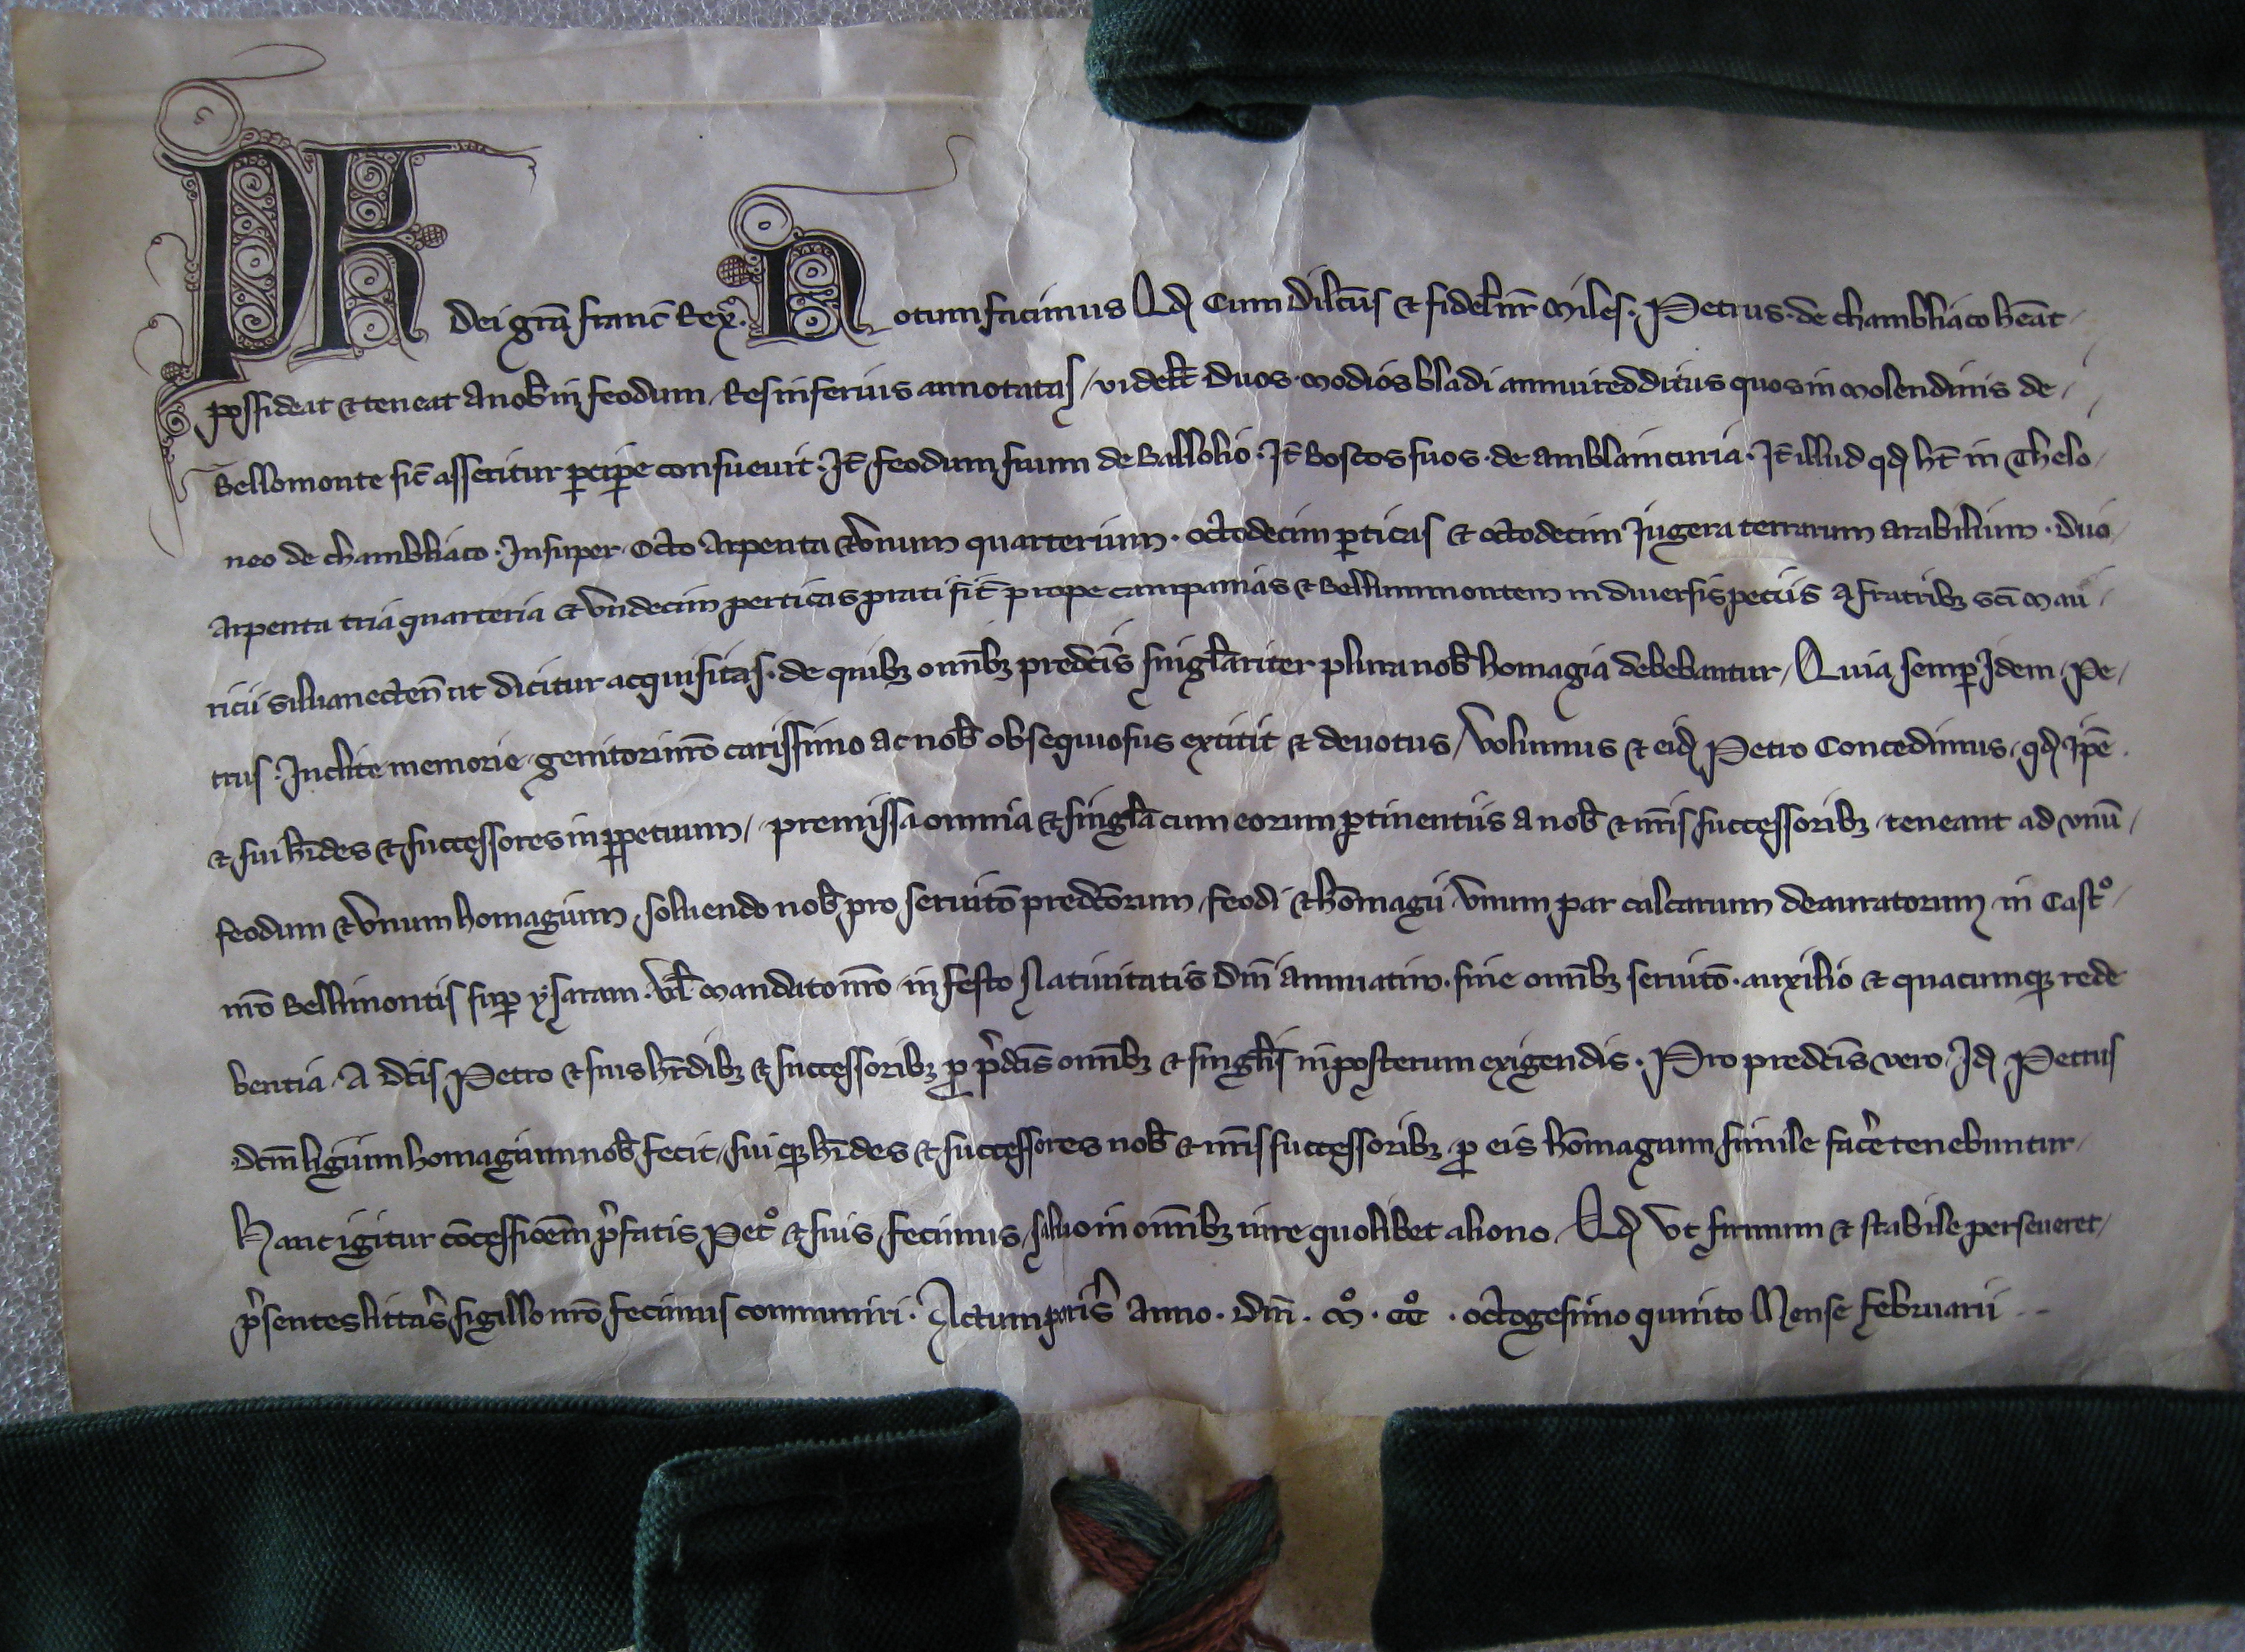 PH Dei grã franc̃ Rex. Notum facimus Qđ Cum Dilc̃us & fidel̃ nr̃ Miles. Petrus. de chambliaco hẽat /
possideat & teneat a nob̃ in feodum / Res inferius annotatas / videlt̃ Duos Modios bladi annui redditus quos in Molendinis de /
Bellomonte sic̃ asseritur ꝑciꝑe consueuit. It̃ / feodum suum de Ballolio. It̃ Boscos suos de Amblaincuria. It̃ illud qđ ht̃ in Thelo /
neo de chambliaco. Insuper. Octo Arpenta & Vnum quarterium. octodecim ꝑticas & octodecim Jugera terrarum Arabilium. Duo /
Arpenta tria quarteria & Vndecim perticas prati sit̃ prope campanias & Bellummontem in diuersis peciis a fratribꝫ sc̃i Mau /
ricii siluanecteñ ut dicitur acquisitas. de quibꝫ omĩbꝫ predc̃is singl̃ariter plura nob̃ homagia debebantur / Quia semꝑ Idem Pe /
trus. Inclite memorie genitori nr̃o carissimo ac nob̃ obsequiosus extitit & deuotus / Volumus & eiđ Petro Concedimus / qđ ip̃e.
& sui hr̃des & successores inꝑpetuum / premissa omnia & singl̃a cum eorum ꝑtinentiis a nob̃ & nr̃is successoribꝫ teneant ad vnũ /
feodum & Vnum homagium, soluendo nob̃ pro seruitõ predc̃orum feodi & hõmagii Vnum par calcarium deauratorum in Castᵒ /
nr̃o Bellimontis suꝑ ysaram. Vl̃ Mandato nr̃o in festo Natiuitatis Dñi annuatim. sine omĩbꝫ seruitõ. auxilio & quacumqꝫ rede
bentia. A dc̃is Petro & suis hr̃dibꝫ & successoribꝫ ꝓ p̃dc̃is omĩbꝫ & singl̃is inposterum exigendis. Pro predc̃is vero. Iđ Petrus
dc̃m ligium homagium nob̃ fecit / suiqꝫ hr̃des & successores nob̃ & nr̃is successoribꝫ ꝓ eis hõmagium simile fac̃e tenebuntur /
Hanc igitur cõcessioẽm p̃fatis Petᵒ & suis fecimus / saluo in omĩbꝫ iure quolibet alieno. Qđ Vt firmum & stabile perseueret /
p̃sentes litt̃as sigillo nr̃o fecimus communiri. Actum paris̃ Anno. Dñi. Mᵒ. CCᵒ. octogesimo quinto Mense Februarii